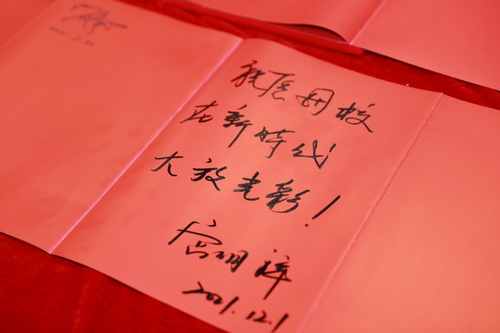 祝愿母校
在新時代
大放光彩!
2021.12.1